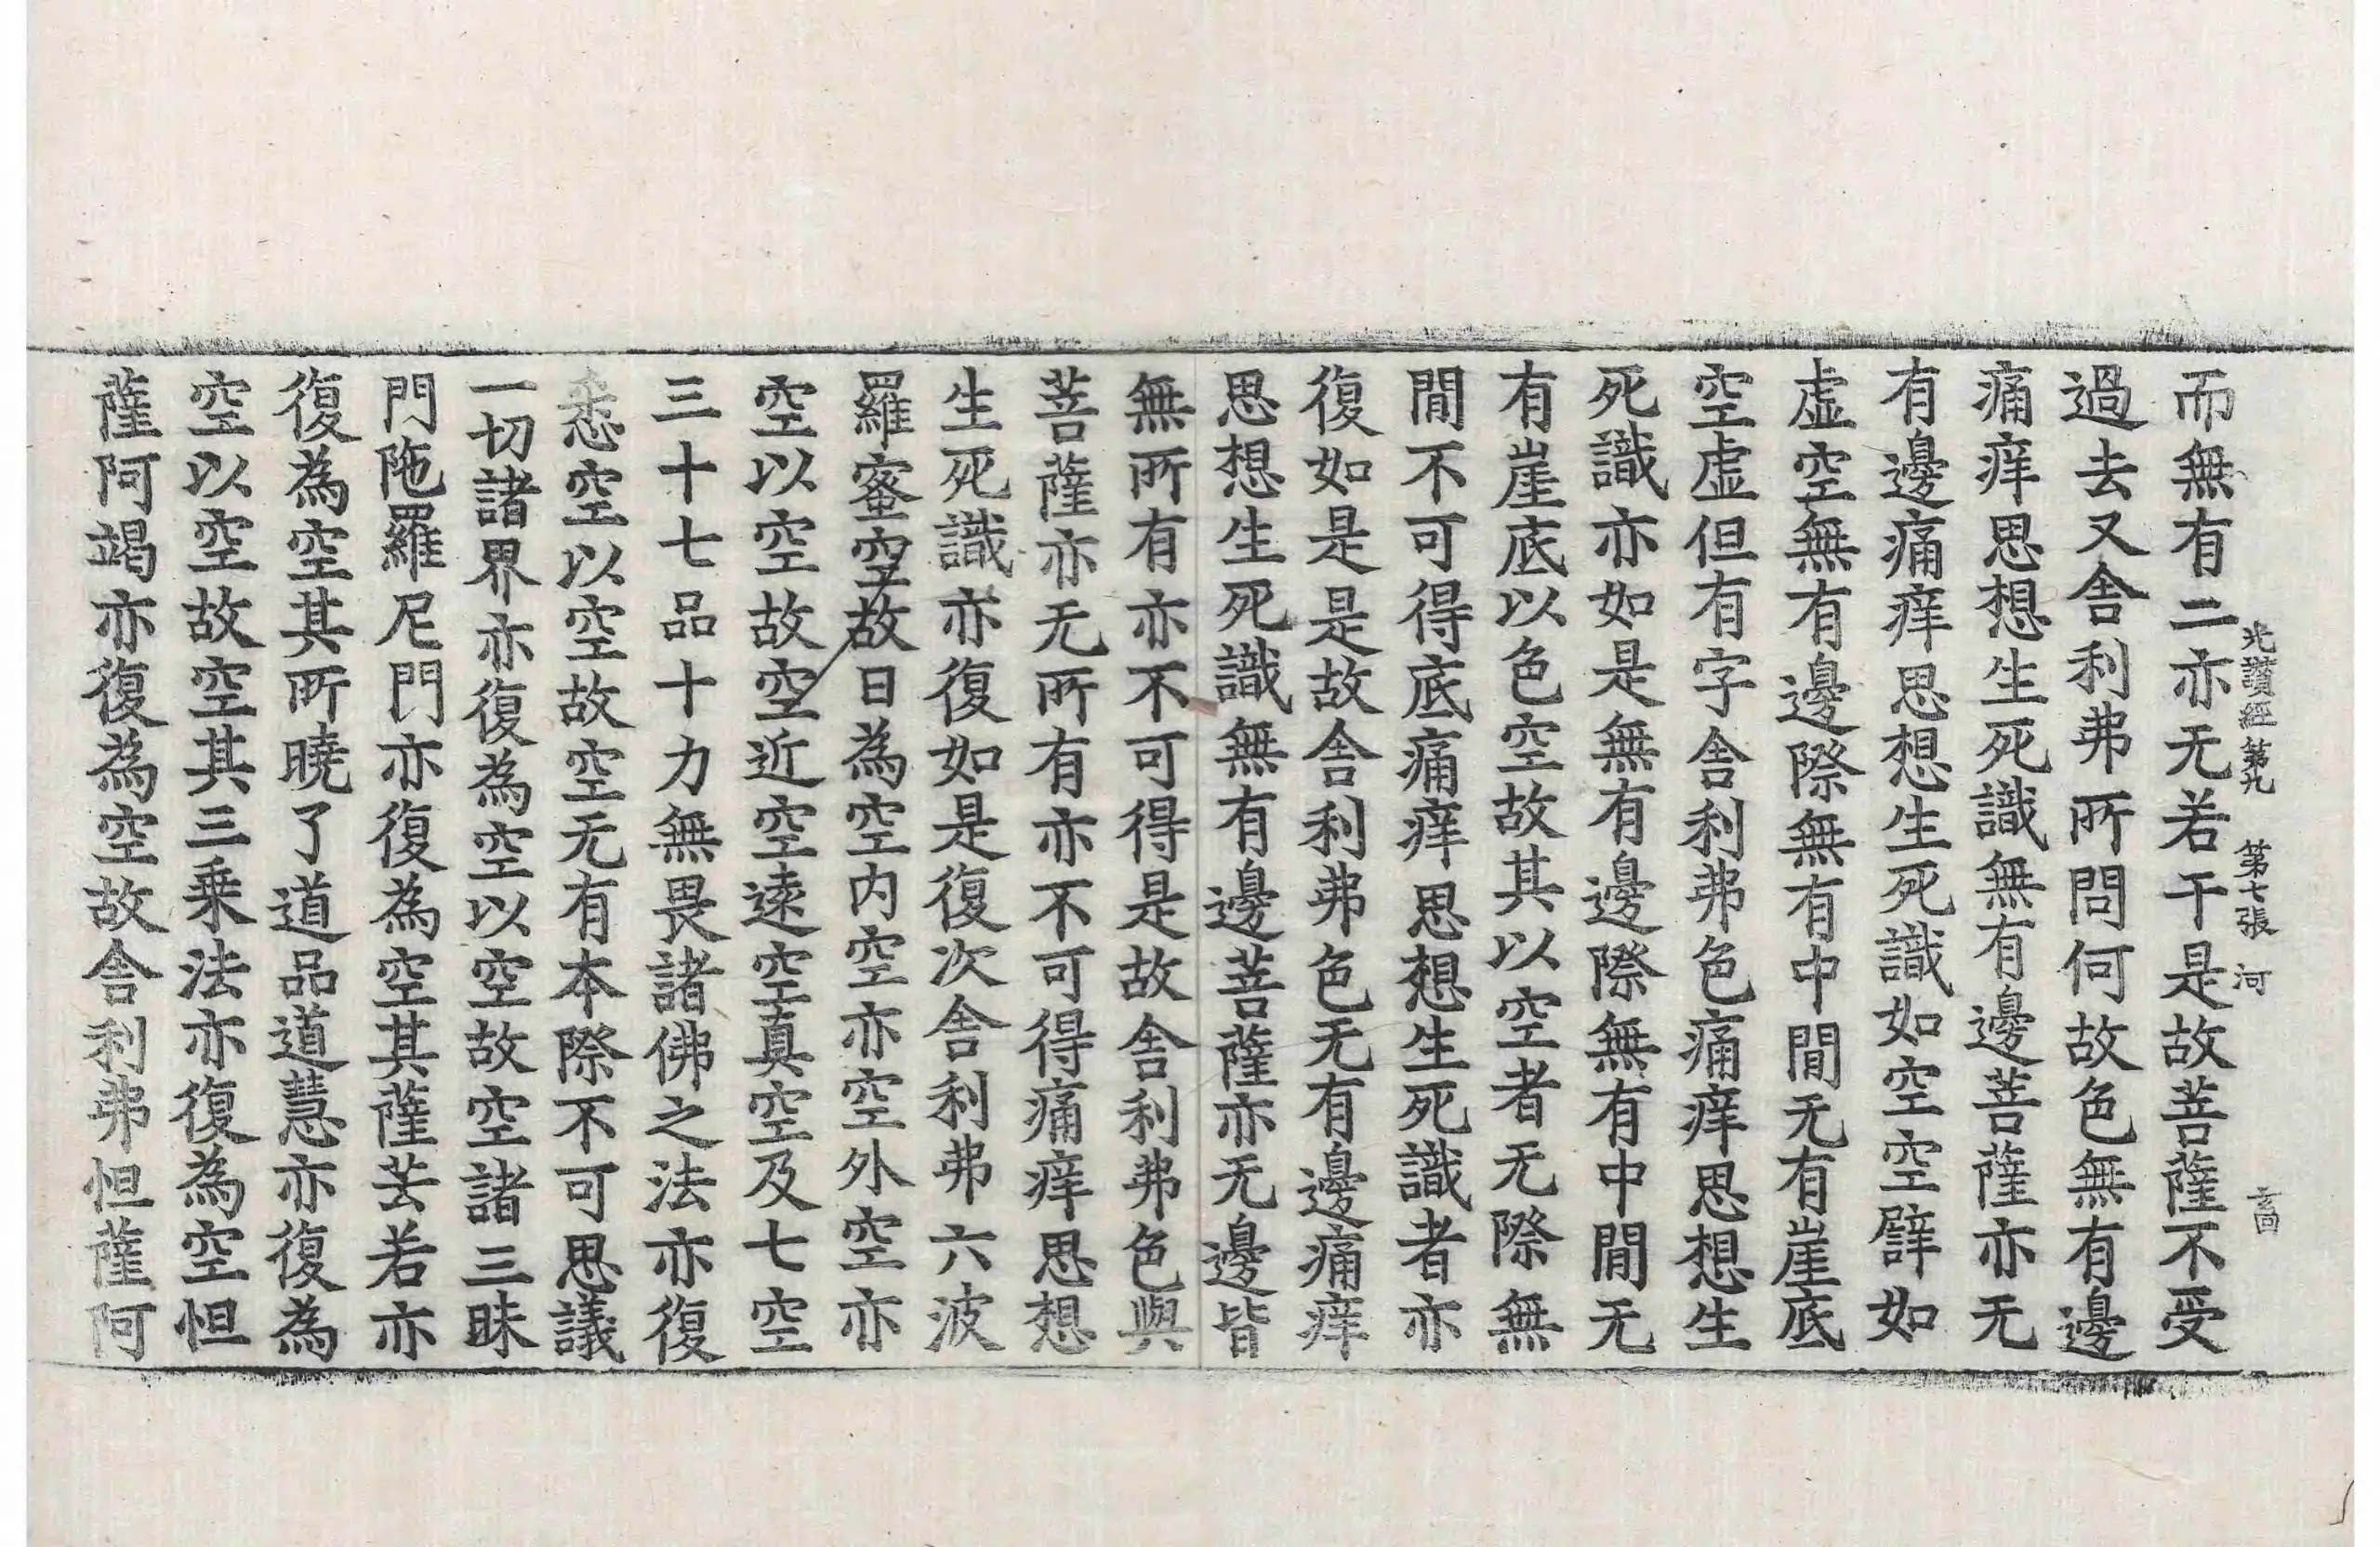 光讃經第九 第七張 河
而無有二亦无若干是故菩薩不受
過去又舎利弗所問何故色無有邊
痛痒思想生死識無有邊菩薩亦无
有邊痛痒思想生死識如空空譬如
虛空無有邊際無有中閒无有崖底
空虛但有字舎利弗色痛痒思想生
死識亦如是無有邊際無有中閒无
有崖底以色空故其以空者无際無
閒不可得底痛痒思想生死識者亦
復如是是故舎利弗色无有邊痛痒
思想生死識無有邊菩薩亦无邊皆
無所有亦不可得是故舎利弗色與
菩薩亦无所有亦不可得痛痒思想
生死識亦復如是復次舎利弗六波
羅蜜空故日為空内空亦空外空亦
空以空故空近空遠空真空及七空
三十七品十力無畏諸佛之法亦復
悉空以空故空无有本際不可思議
一切諸界亦復為空以空故空諸三昧
門陁羅尼門亦復為空其薩芸若亦
復為空其所曉了道品道慧亦復為
空以空故空其三乗法亦復為空怛
薩阿竭亦復為空故舎利弗怛薩阿